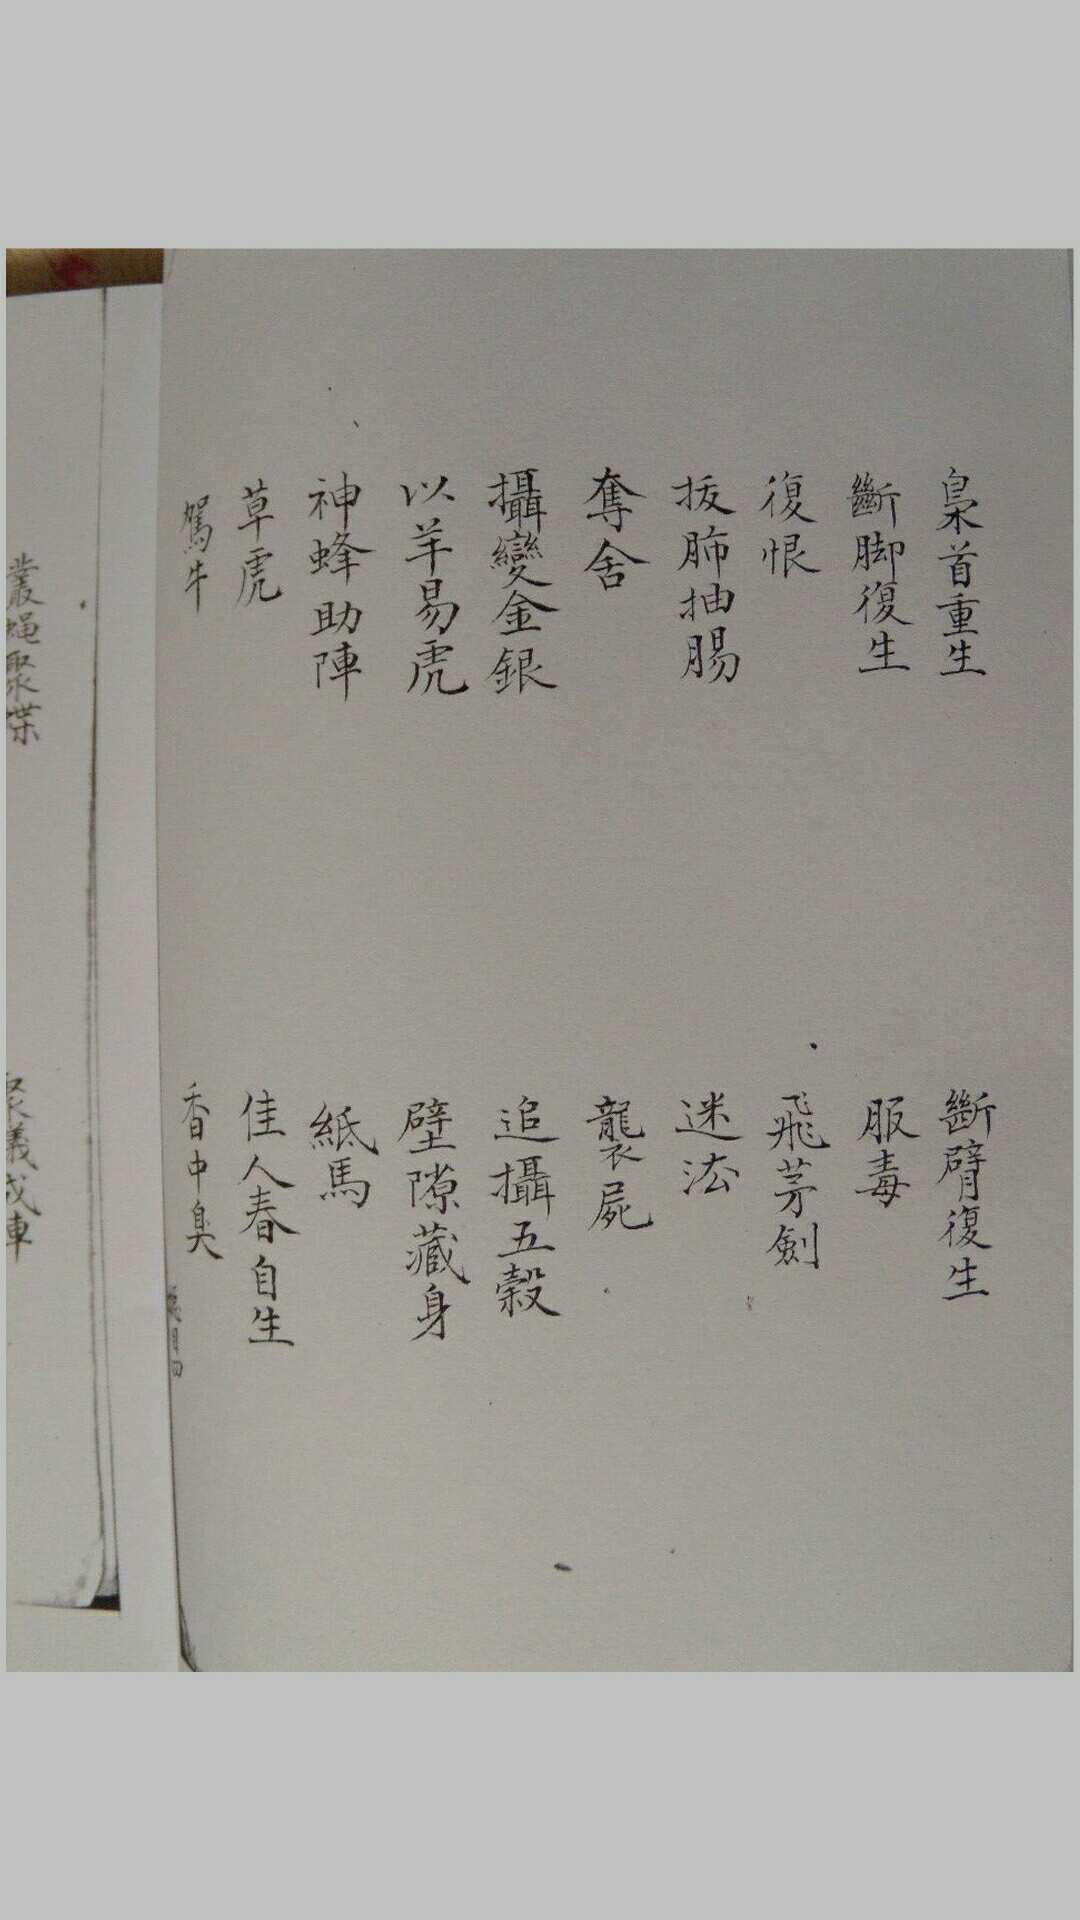 梟首重生
斷臂復生
斷脚復生
服毒
復恨
飛茅劍
拔肺抽腸
迷法
奪舍
襲屍
攝變金銀
追攝五穀
以羊易虎
壁隙藏身
神蜂助陣
紙馬
草虎
佳人春自生
駕牛
香中臭
叢蝇聚蝶
聚蟻成陣